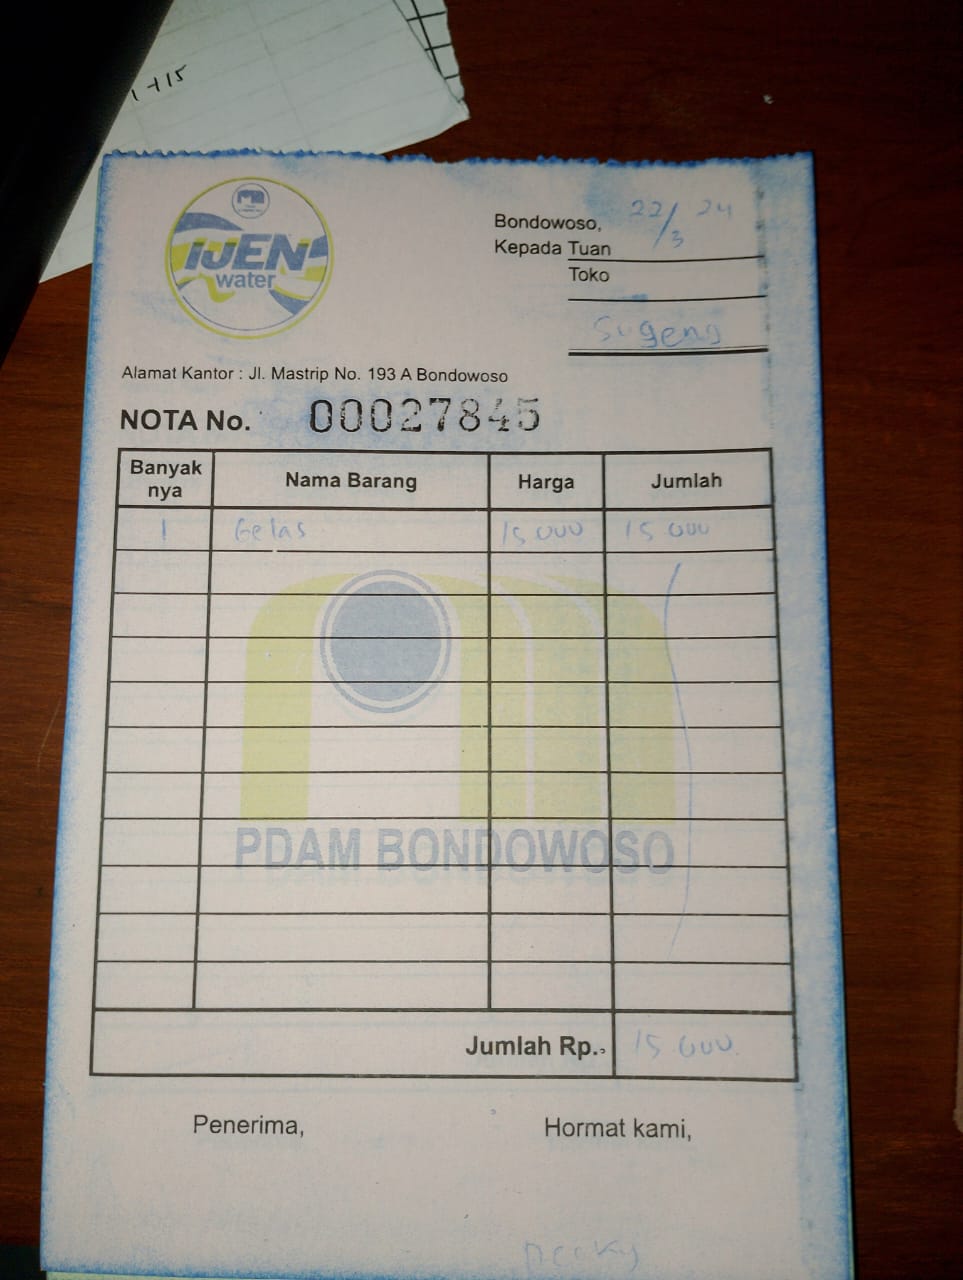 +15
IJEN
water
Bondowoso, 22/3 24
Kepada Tuan
Toko
Sugeng
Alamat Kantor : Jl. Mastrip No. 193 A Bondowoso
NOTA No. 00027845
Banyak nya Nama Barang Harga Jumlah
1 Gelas 15 000 15 000
PDAM BONDOWOSO
Jumlah Rp. 15.000
Penerima, Hormat kami,